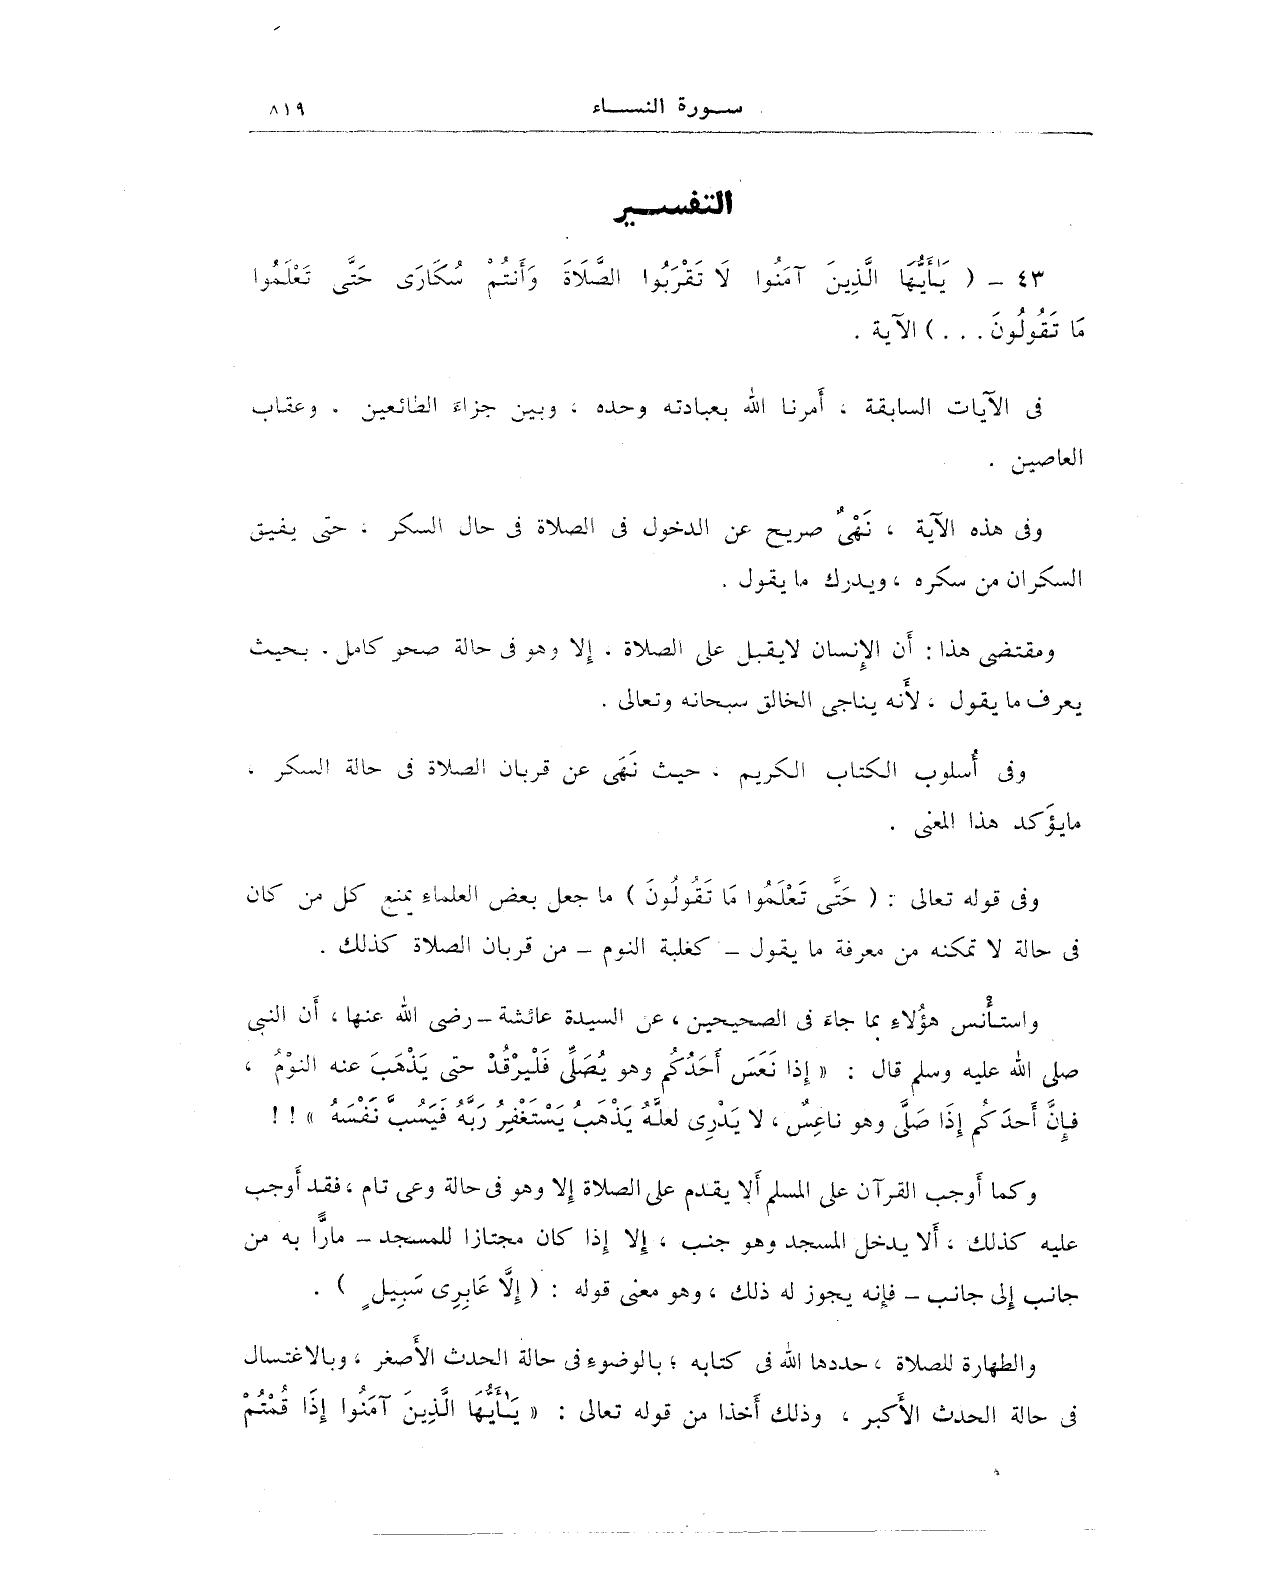 سورة النساء ٨١٩
التفسير
٤٣ - ( يَٰأَيُّهَا الَّذِينَ آمَنُوا لَا تَقْرَبُوا الصَّلَاةَ وَأَنتُمْ سُكَارَى حَتَّى تَعْلَمُوا
مَا تَقُولُونَ . . . ) الآية .
فى الآيات السابقة ، أَمرنا الله بعبادته وحده ، وبين جزاءَ الطائعين . وعقاب
العاصين .
وفى هذه الآية ، نَهْىٌ صريح عن الدخول فى الصلاة فى حال السكر ، حتى يفيق
السكران من سكره ، ويدرك ما يقول .
ومقتضى هذا : أَن الإِنسان لايقبل على الصلاة . إلا وهو فى حالة صحو كامل . بحيث
يعرف ما يقول ، لأَنه يناجى الخالق سبحانه وتعالى .
وفى أُسلوب الكتاب الكريم ، حيث نَهَى عن قربان الصلاة فى حالة السكر ،
مايؤَكد هذا المعنى .
وفى قوله تعالى : ( حَتَّى تَعْلَمُوا مَا تَقُولُونَ ) ما جعل بعض العلماءِ يمنع كل من كان
فى حالة لا تمكنه من معرفة ما يقول - كغلبة النوم - من قربان الصلاة كذلك .
واستأْنس هؤُلاءِ بما جاءَ فى الصحيحين ، عن السيدة عائشة - رضى الله عنها ، أَن النبى
صلى الله عليه وسلم قال : « إِذا نَعَسَ أَحَدُكُم وهو يُصَلِّى فَلْيرْقُدْ حتى يَذْهَبَ عنه النوْمُ ،
فإِنَّ أَحدَكُم إِذَا صَلَّى وهو ناعِسٌ ، لا يَدْرِى لعلهُ يَذْهَبُ يَسْتَغْفِرُ رَبَّهُ فَيَسُبَّ نَفْسَهُ » ! !
وكما أَوجب القرآن على المسلم أَلا يقدم على الصلاة إلا وهو فى حالة وعى تام ، فقد أَوجب
عليه كذلك ، أَلا يدخل المسجد وهو جنب ، إلا إِذا كان مجتازا للمسجد - مارًّا به من
جانب إِلى جانب - فإِنه يجوز له ذلك ، وهو معنى قوله : ( إِلَّا عَابِرِى سَبِيلٍ ) .
والطهارة للصلاة ، حددها الله فى كتابه ؛ بالوضوءِ فى حالة الحدث الأَصغر ، وبالاغتسال
فى حالة الحدث الأَكبر ، وذلك أَخذا من قوله تعالى : « يَٰأَيُّهَا الَّذِينَ آمَنُوا إِذَا قُمْتُمْ